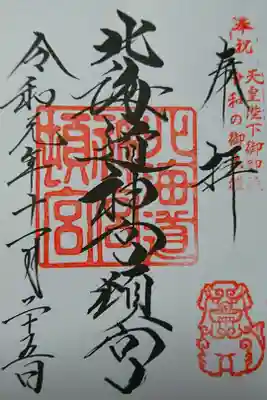 奉祝 天皇陛下御即位
令和の御
奉拝
北海道神宮頓宮
北海道
神宮
頓宮
令和元年十一月二十五日